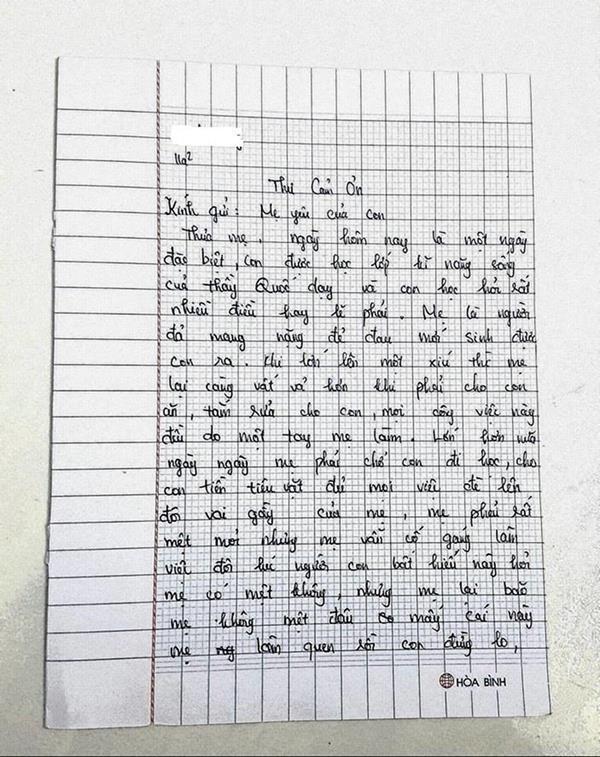 11a2
Thư Cảm Ơn
Kính gửi: Mẹ yêu của con
Thưa mẹ, ngày hôm nay là một ngày
đặc biệt, con được học lớp kĩ năng sống
của thầy Quốc dạy và con học hỏi rất
nhiều điều hay lẽ phải. Mẹ là người
đã mang nặng đẻ đau mới sinh được
con ra. Khi lớn lên một xíu thì mẹ
lại càng vất vả hơn khi phải cho con
ăn, tắm rửa cho con, mọi công việc này
đều do một tay mẹ làm. Lớn hơn nữa
ngày ngày mẹ phải chở con đi học, cho
con tiền tiêu vặt đủ mọi việc đè lên
đôi vai gầy của mẹ, mẹ phải rất
mệt mỏi nhưng mẹ vẫn cố gang làm
việc đôi lúc người con bất hiếu này hỏi
mẹ có mệt không, nhưng mẹ lại bảo
mẹ không mệt đâu mấy cái này
mẹ làm quen rồi con đừng lo,
HÒA BÌNH